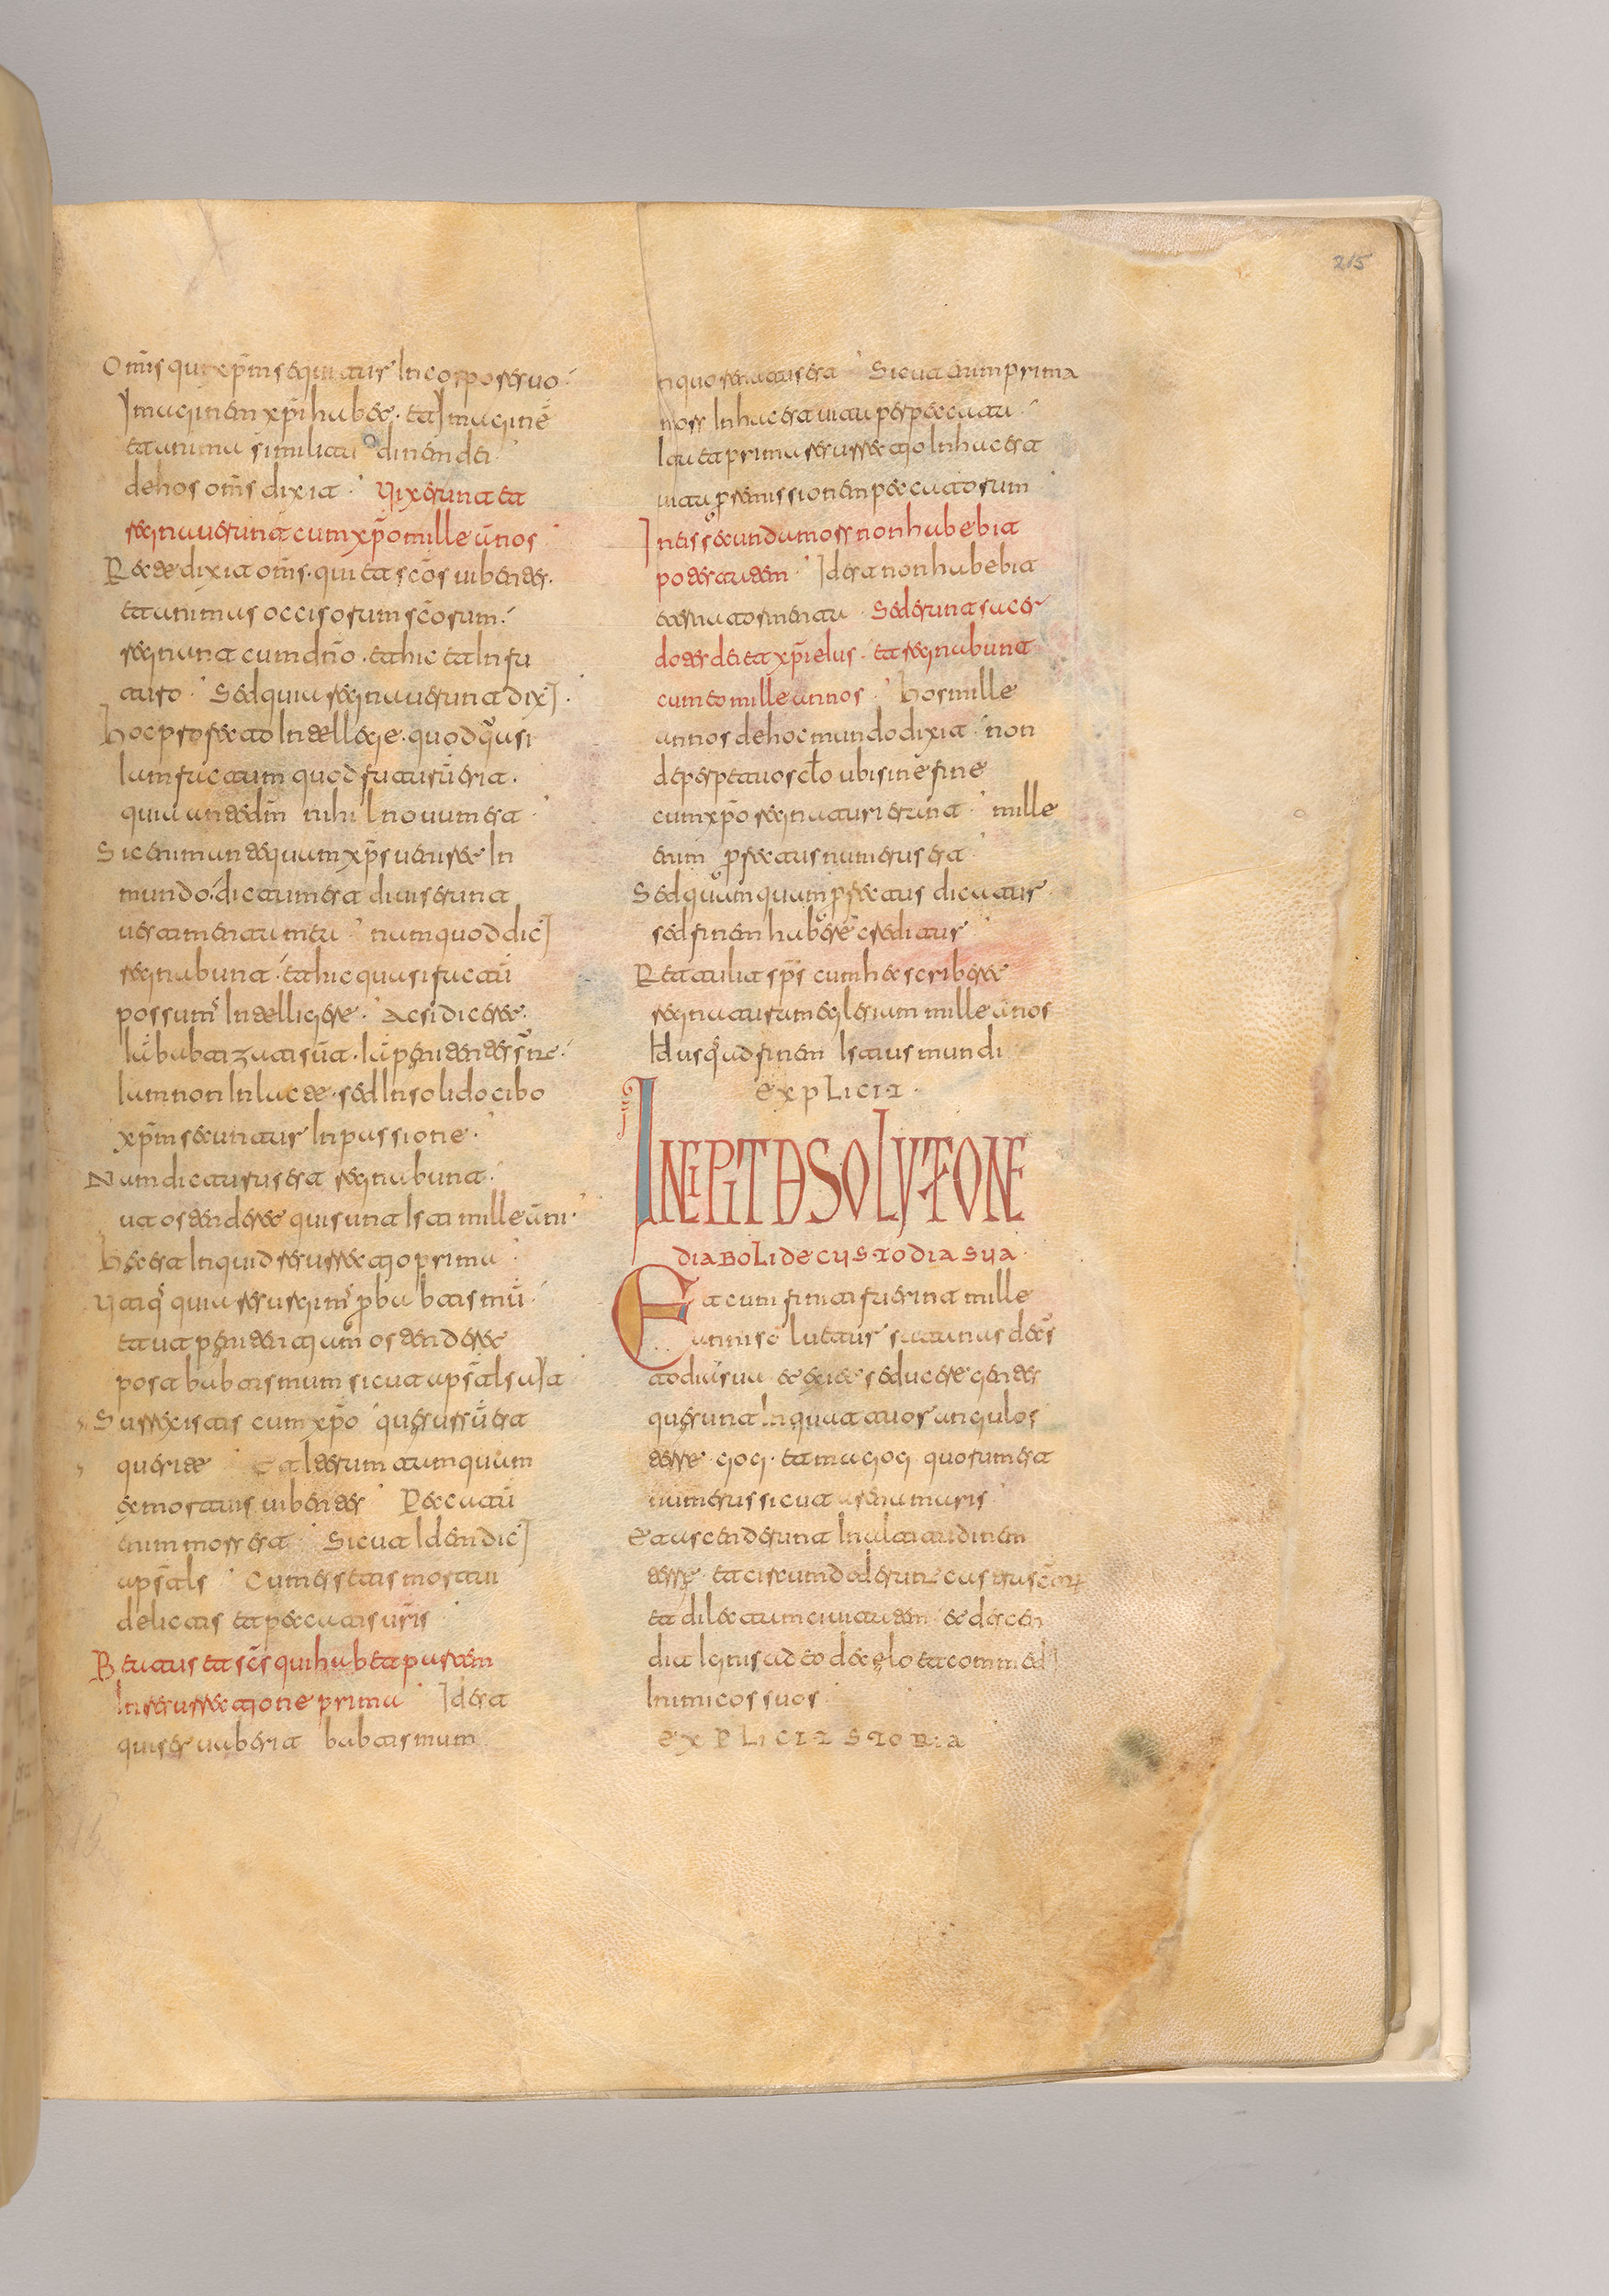 215
Om̄s qui xp̄m sequitur In corpore suo
Imaginem xp̄i habet · et Imaginē
et anima similitudinem dei
de hos om̄s dixit · Vixerunt et
regnaverunt cum xp̄o mille ānos
Recte dixit om̄s · qui et sc̄os vibentes ·
et animas occisorum sc̄orum
regnant cum dn̄o · et hic et In fu
turo · Sed quia regnaverunt dixit ·
hoc profecto Intellege · quod quasi
iam factum quod futurū erit ·
quia aput dm̄ nihil novum est
Sic enim antequam xp̄s veniret In
mundo · dictum est diviserunt
vestimenta mea numquod dicit
regnabunt · et hic quasi factū
possum Intelligere · Ac si diceret
iam non In lacte · sed In solido cibo
xp̄m secuntur In passione ·
Nam dicturus est regnabunt ·
ut ostenderet qui sunt Isti mille ānni ·
hec est Inquid resurrectjo prima
et ut penitentjam ostenderet
post babtismum sicut apsāls ait
Surrexistis cum xp̄o que sursū est
querite Et Iterum tamquam
ex mortuis vibentes Peccatū
enim mors est Sicut Idem dicit
apsāls Cum essetis mortui
delictis et peccatis vr̄is
Beatus et sc̄s qui habet partem
In resurrectjone prima Id est
qui servaberit babtismum
In quo renatus est Sicut enim prima
mors In hac est vita per peccata
Ita et prima resurrectjo In hac est
vita per remissionem peccatorum
In eis secunda mors non habebit
potestatem · Id est non habebit
eternatormenta · Sed erunt sacer
dotes dei et xp̄i eius · et regnabunt
cum eo mille annos · hos mille
annos de hoc mundo dixit · non
de perpetuo scl̄o ubi sine fine
cum xp̄o regnaturi erunt · mille
enim perfectus numerus est
Sed quamquam perfectus dicatur
sed finem habere creditur
Retulit sps̄ cum hec scriberet
regnaturam eglesiam mille ānos
Id usque ad finem Istius mundi
explicit ·
INCIPIT DE SOLUTJONE
diaboli de custodia sua ·
Et cum finiti fuerint mille
anni solvetur satanas de cus
todia sua et exiet seducere gentes
que sunt In quattuor angulos
terre gog · et magog quorum est
numerus sicut arena maris
Et ascenderunt In altitudinem
terre · et circumdederunt castra sc̄orum
et dilectam civitatem et descen
dit Ignis a deo de celo et commedit
Inimicos suos
explicit storia